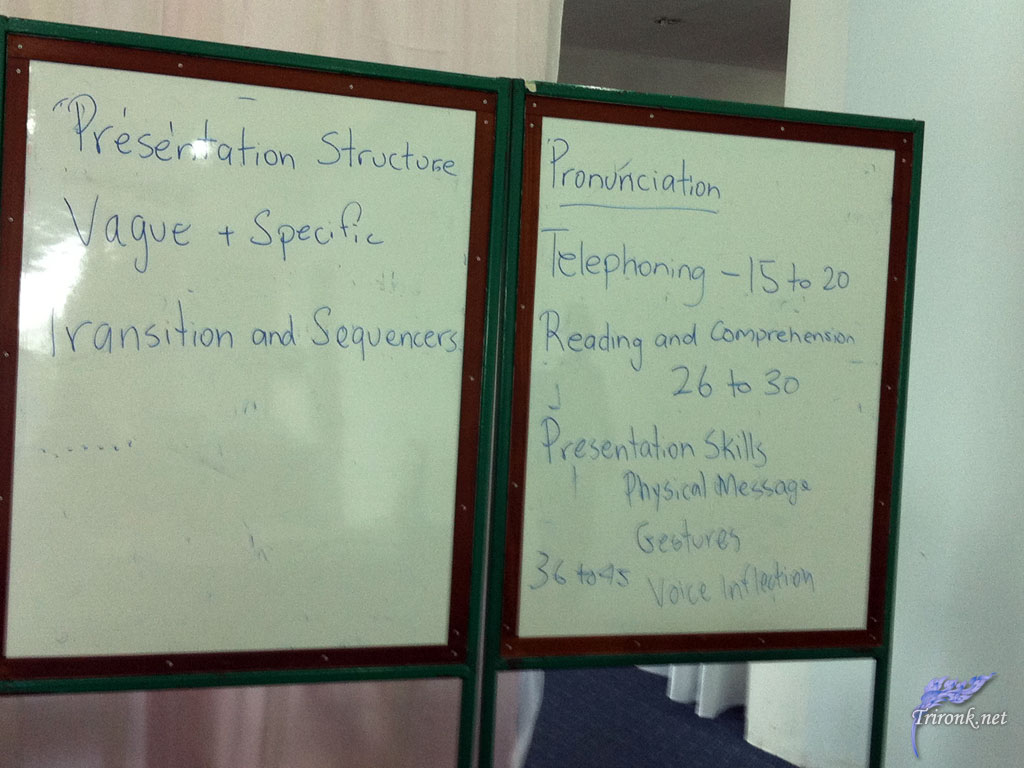 Presentation Structure
Vague + Specific
Transition and Sequencers
.......
Pronunciation
Telephoning - 15 to 20
Reading and Comprehension
26 to 30
Presentation Skills
Physical Message
Gestures
36 to 45 Voice Inflection
Trironk.net